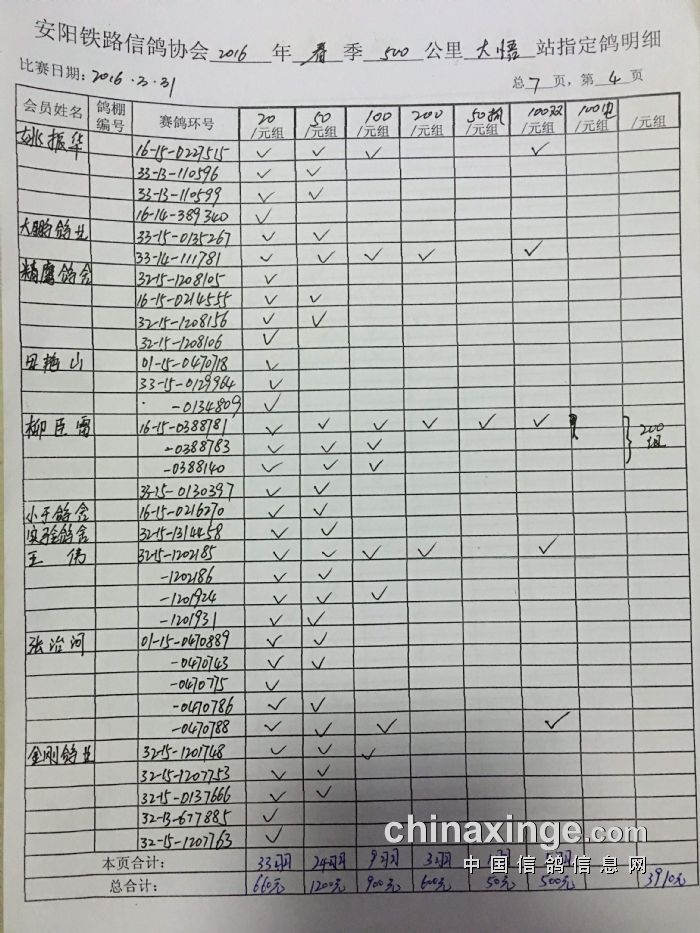 安阳铁路信鸽协会 2016 年 春 季 500 公里 大悟 站指定鸽明细
比赛日期: 2016.3.31 总 7 页, 第 4 页
会员姓名 鸽棚编号 赛鸽环号 20/元组 50/元组 100/元组 200/元组 50抓/元组 100双/元组 100电/元组 /元组
姚振华 16-15-0227515 ✓ ✓ ✓ ✓
33-13-110596 ✓ ✓
33-13-110599 ✓ ✓
16-14-389340 ✓
大鹏鸽业 33-15-0135267 ✓ ✓
33-14-111781 ✓ ✓ ✓ ✓ ✓
精鹰鸽舍 32-15-1208105 ✓
16-15-0214555 ✓ ✓
32-15-1208156 ✓ ✓
32-15-1208106 ✓
山 01-15-0470718 ✓
33-15-0129964 ✓
-0134809 ✓
柳臣雷 16-15-0388781 ✓ ✓ ✓ ✓ ✓ ✓
-0388783 ✓ ✓ ✓ 200组
-0388140 ✓ ✓ ✓
33-15-0130397 ✓ ✓
小于鸽舍 16-15-0216270 ✓ ✓
实验鸽舍 32-15-1314458 ✓ ✓
王伟 32-15-1202185 ✓ ✓ ✓ ✓ ✓
-1202186 ✓ ✓
-1201924 ✓ ✓ ✓
-1201931 ✓ ✓
张治河 01-15-0470889 ✓ ✓
-0470743 ✓ ✓
-0470775 ✓
-0470786 ✓ ✓
-0470788 ✓ ✓ ✓ ✓
金刚鸽业 32-15-1201748 ✓ ✓ ✓
32-15-1207753 ✓ ✓
32-15-0137666 ✓ ✓
32-13-677885 ✓
32-15-1207763 ✓
chinaxinge.com
本页合计: 33羽 24羽 9羽 3羽
中国信鸽信息网
总合计: 660元 1200元 900元 600元 50元 500元 3910元